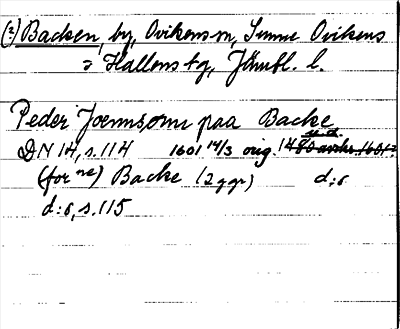 (2) Backen, by, Ovikens sn, Sunne Ovikens
o Hallens tg, Jämtl. l.
Peder Joennsønn paa Backe
s. d.
DN 14, s. 114 1601 14/3 orig.
(for ne) Backe (2 ggr) d:o
d:o, s. 115